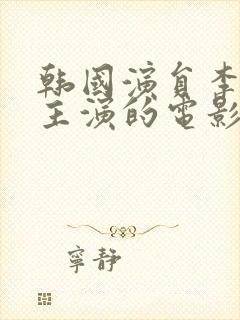 韩國演員李
主演的電影
寧静